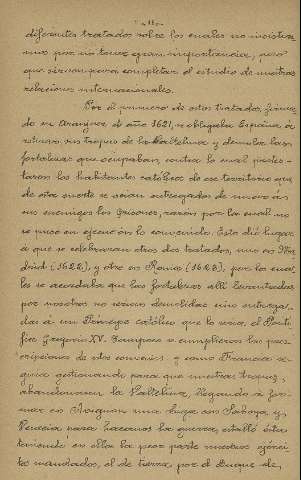 - 11 -
diferentes tratados sobre los cuales no insistire
mos por no tener gran importancia, pero
que sirven para completar el estudio de nuestras
relaciones internacionales.
Por el primero de estos tratados, firma
do en Aranjuez el año 1621, se obligaba España á
retirar sus tropas de la Valtelina y demoler las
fortalezas que ocupaban, contra lo cual protes-
taron los habitantes católicos de ese territorio que
de esta suerte se veían entregados de nuevo á
sus enemigos los Grisones, razón por la cual no
se puso en ejecución lo convenido. Esto dió lugar
á que se celebraran otros dos tratados, uno en Ma
drid (1622) y otro en Roma (1623), por los cua
les se acordaba que las fortalezas allí levantadas
por nosotros no serían demolidas sino entrega-
das á un Príncipe católico que lo sería, el Pontí
fice Gregorio XV. Tampoco se cumplieron las pres
cripciones de estos convenios y como Francia se
guía gestionando para que nuestras tropas,
abandonaran la Valtelina, llegando á for
mar en Avignon una Liga con Saboya y
Venecia para hacernos la guerra, estalló ésta
teniendo en ella la peor parte nuestro ejérci
to mandados, el de tierra, por el Duque de